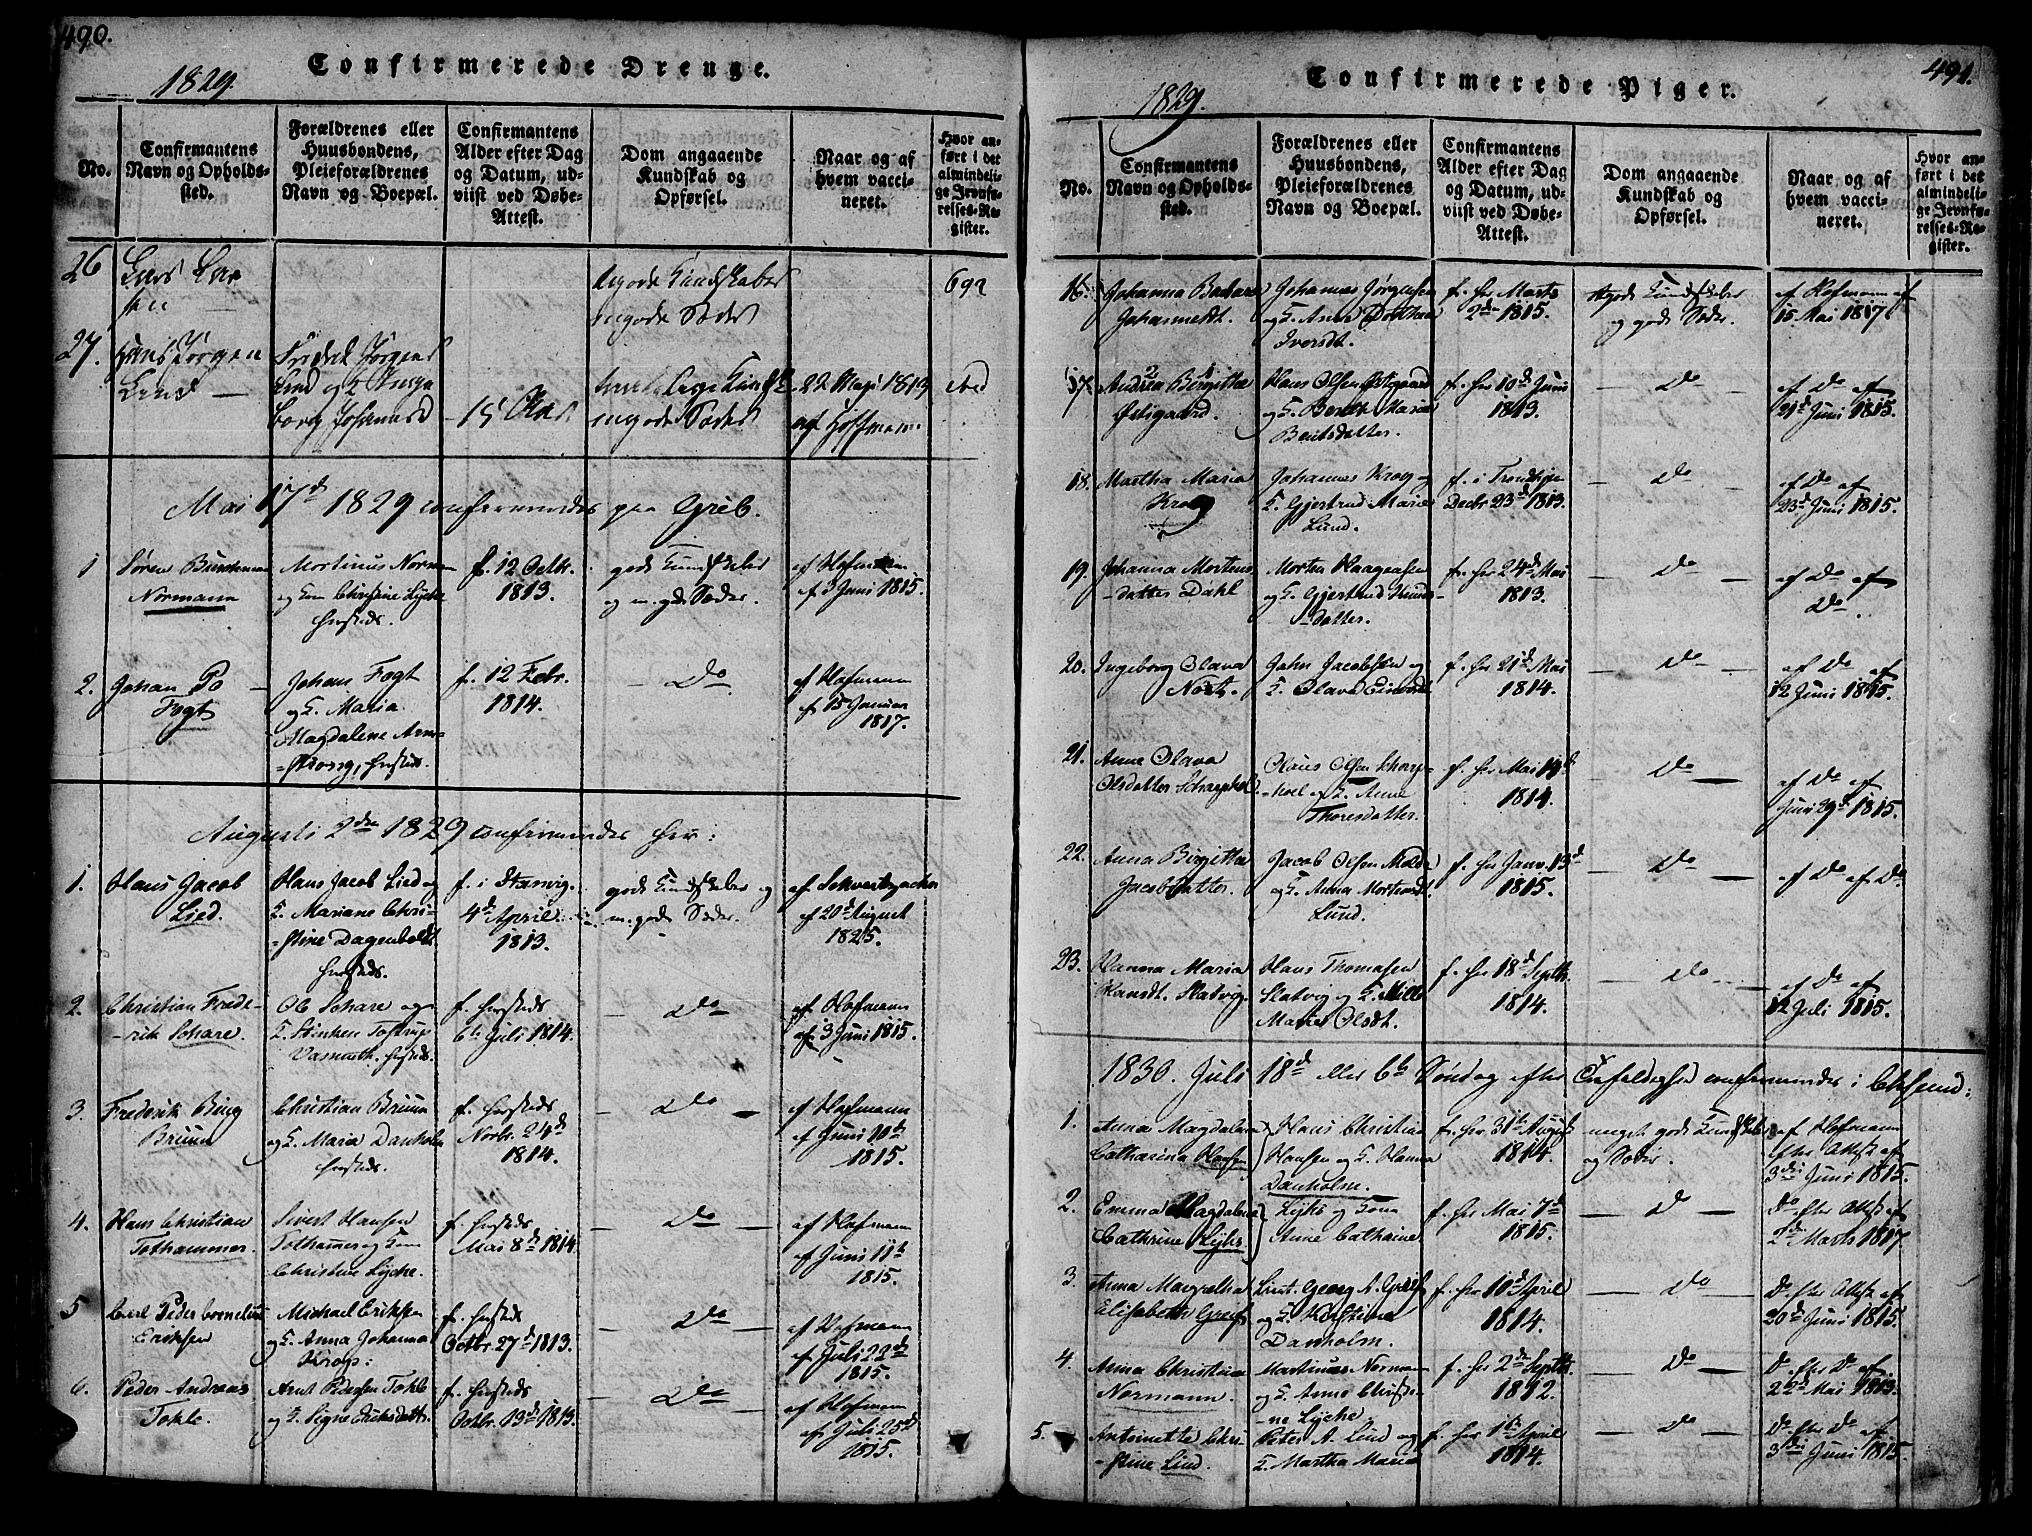 490.
Confirmerede Drenge.
1829.
No.
Confirmantens
Navn og Opholds-
sted.
Forældrenes eller
Huusbondens,
Pleieforældrenes
Navn og Boepæl.
Confirmantens
Alder efter Dag
og Datum, ud-
viist ved Døbe-
Attest.
Dom angaaende
Kundskab og
Opførsel.
Naar og af
hvem vacci-
neret.
Hvor an-
ført i det
almindeli-
ge Jevnfø-
relses-Re-
gister.
26
Lars Lar
sen
Kundskaber
Sæder
692
27.
Hans Jørgen
Lind
Fredrik Jørgens
Lind og
borg Johannesd
15 Aar
mgode Sæder
22 Maji 1819
af Hoffmann
Mai 17d 1829 confirmeredes paa Grib.
1
Søren
Normann
Mortinus Norman
og Kone Christine Lyche
hersteds.
f. 12 Octbr.
1813.
gode Kundskaber
og m. gde. Sæder.
af Hofmann
af 3 Juni 1815.
2.
Johan Po
Fogt
Johan Fogt
og K. Maria
Magdalene Arm-
-strong, hersteds.
f. 12 Febr.
1814.
Do
af Hofmann
af 15 Januar
1817.
Augusti 2den 1829 confirmeredes her:
1.
Hans Jacob
Lied.
Hans Jacob Lied og
K. Mariane Chri-
-stine Dagenboldt
hersteds.
f. i
4d April
1813.
gode Kundskaber og
m. gode Sæder.
af
af 20d August
1825.
2.
Christian Frede-
-rik Schare.
Ole Schare og
K. Stinken Tostrup
hersteds.
f. hersteds
6te Juli 1814.
Do
af Hofmann
af 3 Juni 1815.
3.
Frederik Bing
Bruun
Christian Bruun
og K. Maria Danholm
hersteds.
f. hersteds
Novbr. 24d
1814.
Do
af Hofmann
af Juni 10d
1815.
4.
Hans Christian
Tothammer.
Sivert Hansen
Tothammer og Kone
Christine Lyche.
f. hersteds
Mai 8d 1814.
Do
af Hofmann
af Juni 11te
1815.
5
Carl Peder Cornelius
Erichsen
Michael Erichsen
og K. Anna Johanna
Krog:
f. hersteds
Octbr. 27d 1813.
Do
af Hofmann
af Juli 23d
1815.
6.
Peder Andreas
Tohle.
Arnt Pedersen Tohle
og K. Signe Erichsdattr.
f. hersteds
Octbr. 13d 1813.
Do
af Hofmann
af Juli 25d
1815.
491.
Confirmerede Piger.
1829.
No.
Confirmantens
Navn og Opholds-
sted.
Forældrenes eller
Huusbondens,
Pleieforældrenes
Navn og Boepæl.
Confirmantens
Alder efter Dag
og Datum, ud-
viist ved Døbe-
Attest.
Dom angaaende
Kundskab og
Opførsel.
Naar og af
hvem vacci-
neret.
Hvor an-
ført i det
almindeli-
ge Jevnfø-
relses-Re-
gister.
16.
Johanna Barbara
Johannesdt.
Johannes Jørgensen
og K. Anna Dorthea
Iversdt.
f. her Marts
2den 1815.
gode Kundskaber
og gode Sæder.
af Hofmann af
15 Mai 1817
17.
Andrea Birgitha
Østigaard.
Hans Olsen Østigaard
og K. Berith Marie
Bentsdatter.
f. her 10d Juni
1813.
Do
af Do af
21d Juni 1815.
18.
Martha Maria
Krog
Johannes Krog og
K. Gjertrud Marie
Lund.
f. i Trondhjem
Decbr 23d 1813.
Do
af Do af
23d Juni 1815.
19.
Johanna Mortens
-datter Dahl
Morten Haagensen
og K. Gjertrud Knuds
-datter.
f. her 24d Mai
1813.
Do
af Do af
Do.
20.
Ingeborg Olava
John Jacobsen og
K. Olava
f. her 21d Mai
1814.
Do
af Do af
12 Juni 1815.
21.
Anne Olava
Olsdatter
Olaus Olsen
og K. Anne
Thoresdatter.
f. her Mai 19d
1814.
Do
af Do af
Juni 29d 1815.
22.
Anna Birgitha
Jacobsdatter.
Jacob Olsen Molde
og K. Anna Mortensdt.
Lund.
f. her Janv. 13d
1815.
Do
af Do af Do.
23.
Hanna Maria
Hansdt. Slatvig.
Hans Thomasen
Slatvig og K. Mille
Marie Olsdt.
f. her 18d Septbr.
1814.
Do
af Do af
12 Juli 1815.
1830. Juli 18d eller 6te Søndag efter Trefoldighed confirmeredes i Chrsund:
1.
Anna Magdalena
Catharina Hansen
Hans Christian
Hansen og K. Hanna
Danholm.
f. her 31te August
1814.
meget gode Kundskaber
og Sæder.
af Hofmann
efter Attest af
3die Juni 1815.
2.
Emma Magdalena
Cathrine Lyche.
Lyche og Kone
Anne Cathrine
f. her Mai 7d
1815.
Do
Do efter Attest af
2d Marts 1817.
3.
Anna Margretha
Elisabeth Greif
Lieut. Georg A. Greif
og K. Kirstina
Danholm.
f. her 10d April
1814.
Do
Do efter Attest af
20d Juni 1815.
4.
Anna Christina
Normann.
Martinus Norman
og K. Anne Christi-
-ne Lyche
f. her 2d Septbr.
1812.
Do
Do efter Do af
22d Mai 1813.
5.
Antoinette Chri-
-stine Lind.
Peter A. Lind og
K. Martha Maria
f. her 1ste April
1814.
Do
Do efter Do af
3die Juni 1815